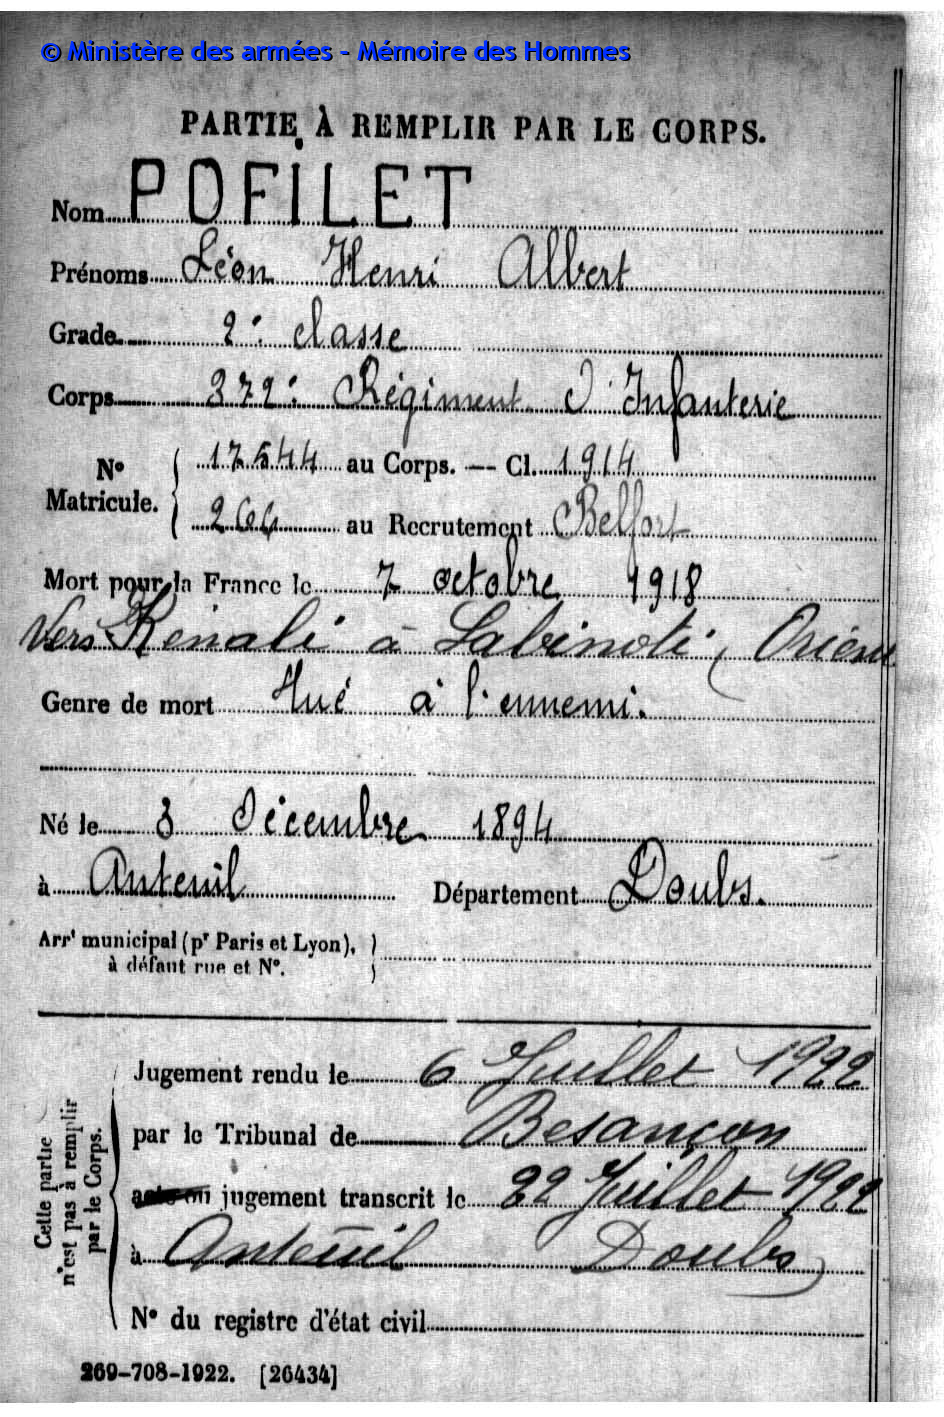 © Ministère des armées - Mémoire des Hommes
PARTIE À REMPLIR PAR LE CORPS.
Nom POFILET
Prénoms Léon Henri Albert
Grade 2e classe
Corps 372e Régiment d'Infanterie
No Matricule. { 17544 au Corps. — Cl. 1914
266 au Recrutement Belfort
Mort pour la France le 7 octobre 1918
vers Kenali à Labinoti, Orient
Genre de mort Tué à l'ennemi.
Né le 3 Décembre 1894
à Anteuil Département Doubs.
Arrt municipal (pr Paris et Lyon), }
à défaut rue et No.
Cette partie n'est pas à remplir par le Corps.
Jugement rendu le 6 Juillet 1922
par le Tribunal de Besançon
acte ou jugement transcrit le 22 Juillet 1922
à Anteuil Doubs
No du registre d'état civil
269-708-1922. [26434]